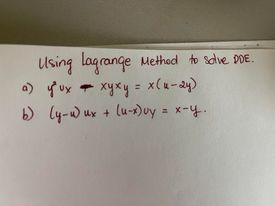 Using Lagrange Method to solve PDE.
a) y² ux - xyxy = x(u-2y)
b) (y-u) ux + (u-x) uy = x-y.